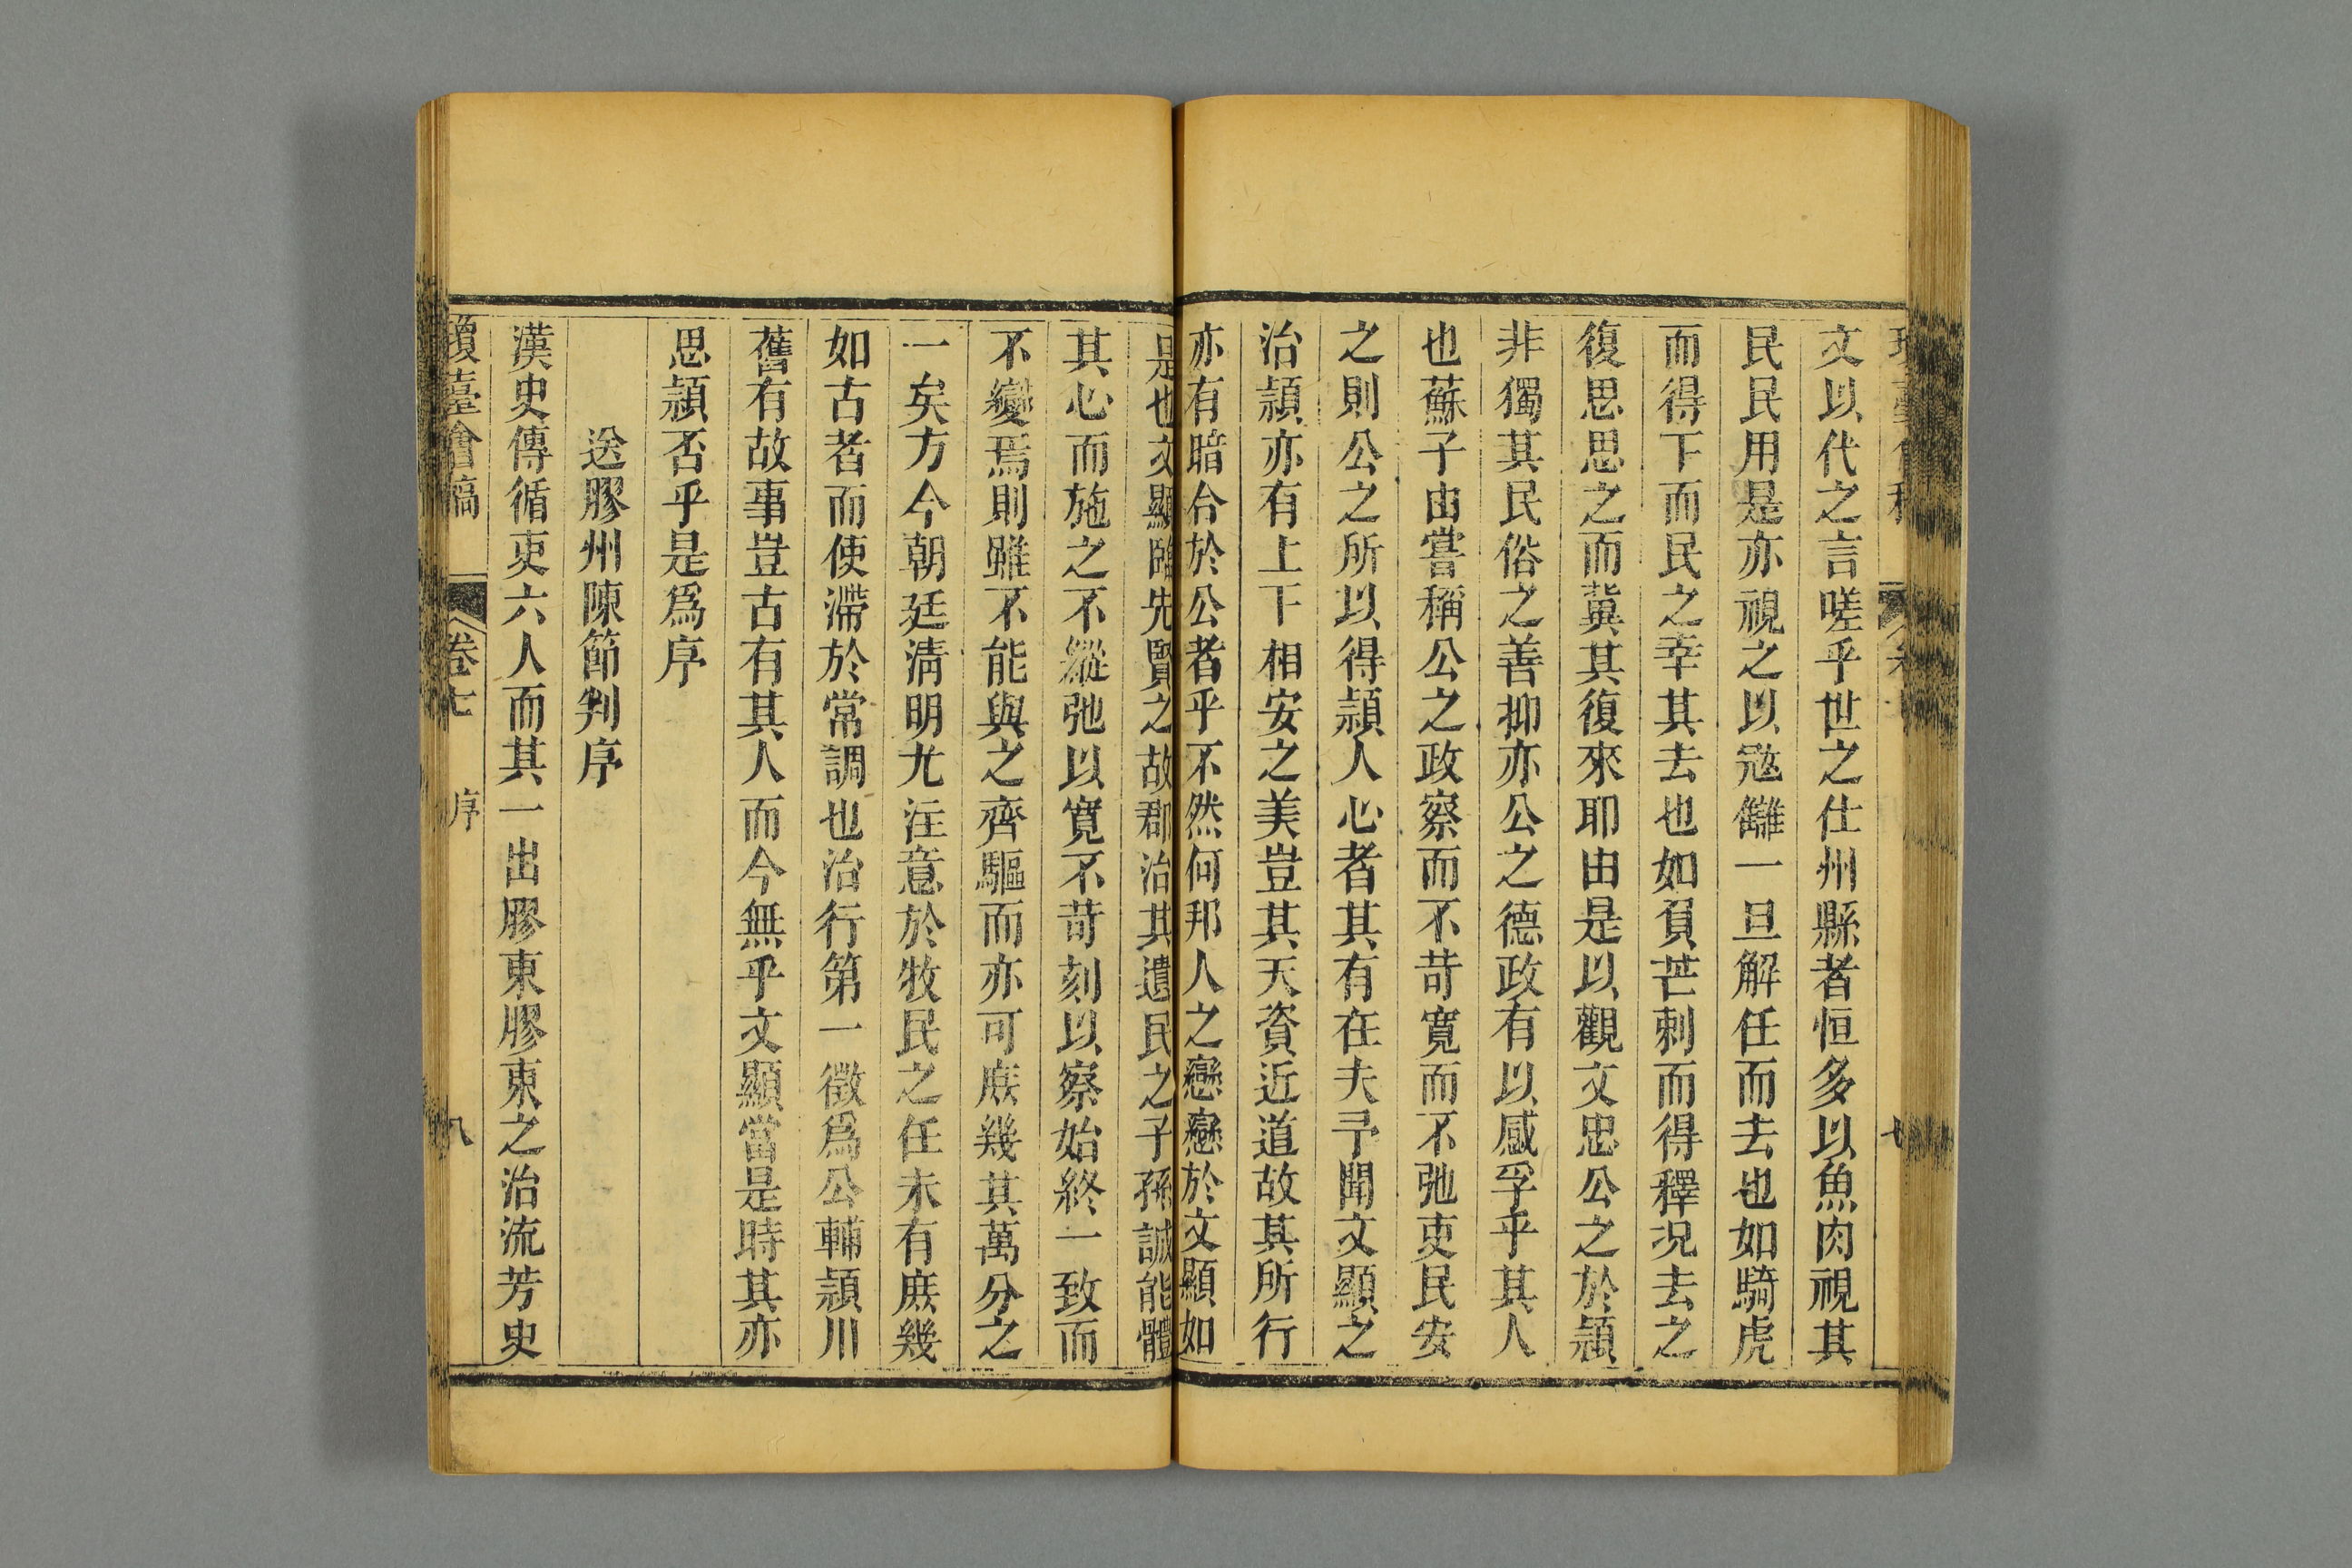 文以代之言嗟乎世之仕州縣者恒多以魚肉視其
民民用是亦視之以寇讎一旦解任而去也如騎虎
而得下而民之幸其去也如負芒刺而得釋况去之
復思思之而冀其復來耶由是以觀文忠公之於潁
非獨其民俗之善抑亦公之德政有以感孚乎其人
也蘇子由嘗稱公之政察而不苛寛而不弛吏民安
之則公之所以得潁人心者其有在夫予聞文顯之
治潁亦有上下相安之美豈其天資近道故其所行
亦有暗合於公者乎不然何邦人之戀戀於文顯如
是也文顯踵先賢之故郡治其遺民之子孫誠能體
其心而施之不縱弛以寬不苛刻以察始終一致而
不變焉則雖不能與之齊驅而亦可庶幾其萬分之
一矣方今朝廷淸明尤注意於牧民之任未有庶幾
如古者而使滯於常調也治行第一徵爲公輔潁川
舊有故事豈古有其人而今無乎文顯當是時其亦
思潁否乎是爲序
送膠州陳節判序
漢史傳循吏六人而其一出膠東膠東之治流芳史
瓊臺會稿
卷七
序
八